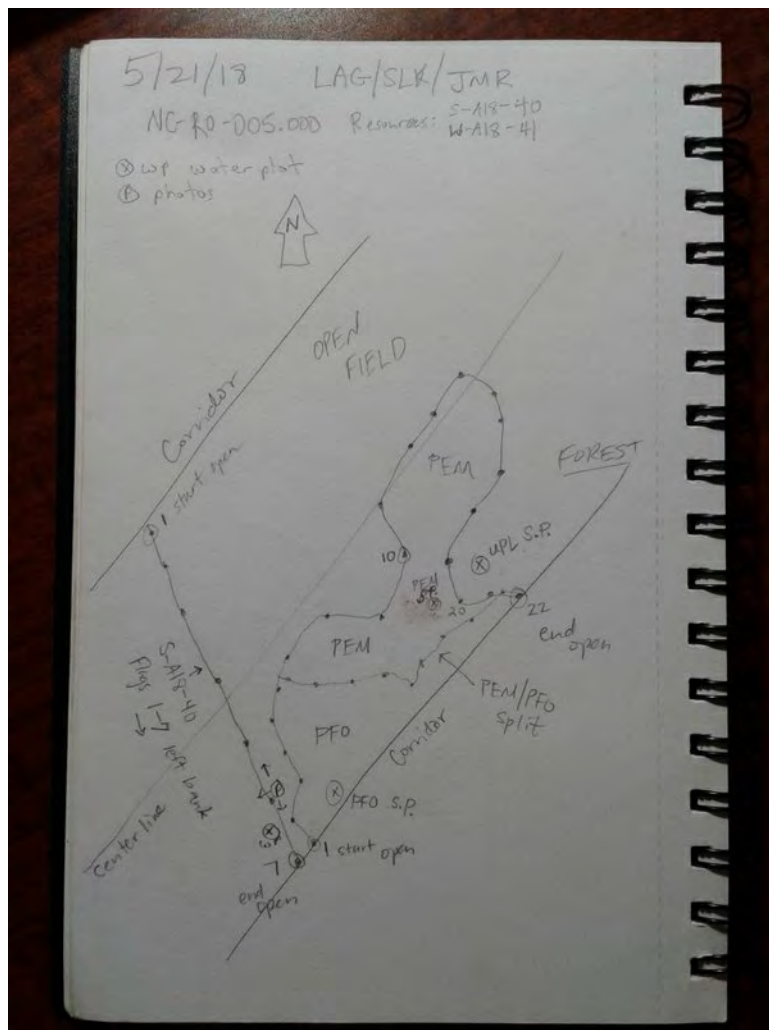 5/21/18 LAG/SLK/JMR
NC-RO-005.000 Resources: S-A18-40
W-A18-41
wp water plot
P photos
N
OPEN
FIELD
Corridor
1 start open
PEM
FOREST
10
UPL S.P.
PEM
S.P.
20
22
end
open
PEM
PEM/PFO
split
S-A18-40
Flags 1-7 left bank
PFO
Corridor
PFO S.P.
center line
1 start open
7
end
open